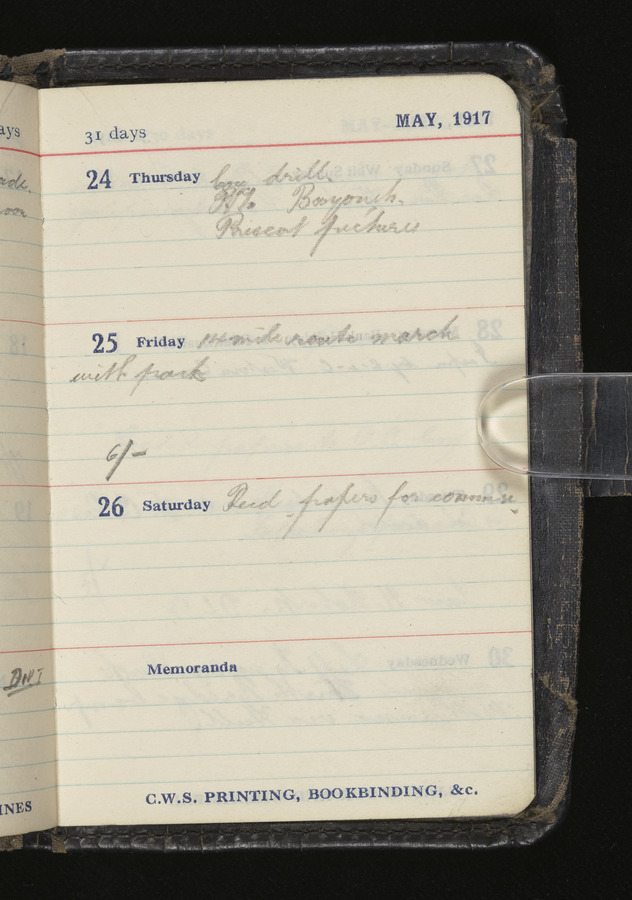 ays
31 days
MAY, 1917
24 Thursday
drill.
Bayonets.
Prescot pictures
25 Friday 14 mile route march
with pack
6/-
26 Saturday Recd papers for commiss.
Memoranda
C.W.S. PRINTING, BOOKBINDING, &c.
INES